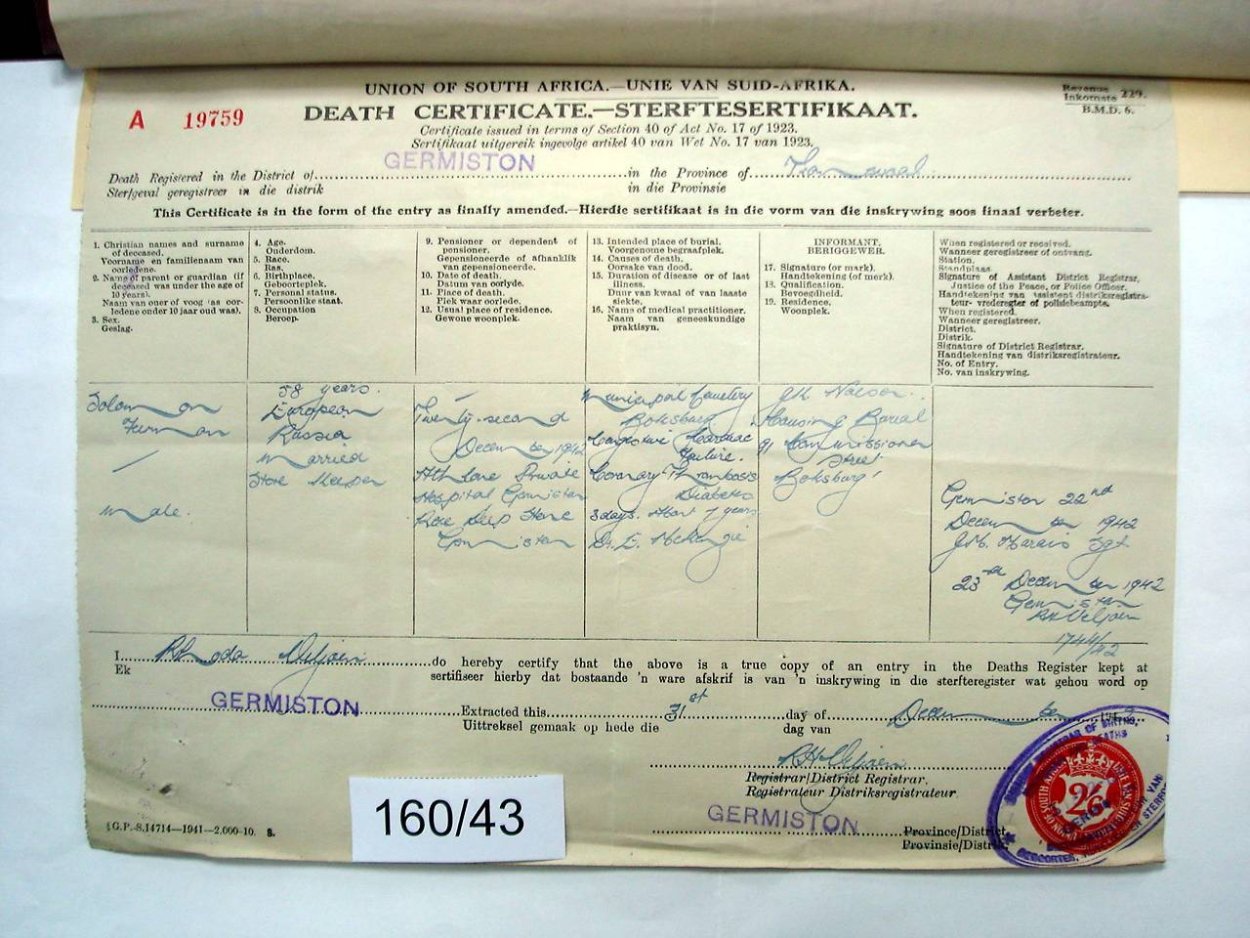 UNION OF SOUTH AFRICA.—UNIE VAN SUID-AFRIKA.
Revenue
Inkomste 229.
B.M.D. 6.
A 19759
DEATH CERTIFICATE.—STERFTESERTIFIKAAT.
Certificate issued in terms of Section 40 of Act No. 17 of 1923.
Sertifikaat uitgereik ingevolge artikel 40 van Wet No. 17 van 1923.
Death Registered in the District of GERMISTON in the Province of Transvaal
Sterfgeval geregistreer in die distrik in die Provinsie
This Certificate is in the form of the entry as finally amended.—Hierdie sertifikaat is in die vorm van die inskrywing soos finaal verbeter.
1. Christian names and surname
of deceased.
Voorname en familienaam van
oorledene.
2. Name of parent or guardian (if
deceased was under the age of
10 years).
Naam van ouer of voog (as oor-
ledene onder 10 jaar oud was).
3. Sex.
Geslag.
4. Age.
Ouderdom.
5. Race.
Ras.
6. Birthplace.
Geboorteplek.
7. Personal status.
Persoonlike staat.
8. Occupation
Beroep.
9. Pensioner or dependent of
pensioner.
Gepensioneerde of afhanklik
van gepensioneerde.
10. Date of death.
Datum van oorlyde.
11. Place of death.
Plek waar oorlede.
12. Usual place of residence.
Gewone woonplek.
13. Intended place of burial.
Voorgenome begraafplek.
14. Causes of death.
Oorsake van dood.
15. Duration of disease or of last
illness.
Duur van kwaal of van laaste
siekte.
16. Name of medical practitioner.
Naam van geneeskundige
praktisyn.
INFORMANT.
BERIGGEWER.
17. Signature (or mark).
Handtekening (of merk).
18. Qualification.
Bevoegdheid.
19. Residence.
Woonplek.
When registered or received.
Wanneer geregistreer of ontvang.
Station.
Standplaas.
Signature of Assistant District Registrar,
Justice of the Peace, or Police Officer.
Handtekening van assistent distriksregistra-
teur- vrederegter of polisiebeampte.
When registered.
Wanneer geregistreer.
District.
Distrik.
Signature of District Registrar.
Handtekening van distriksregistrateur.
No. of Entry.
No. van inskrywing.
Solomon
Furman
Male.
58 years.
European
Russia
Married
Store Keeper
Twenty-second
December 1942
Athlone Private
Hospital Germiston
Rose Deep Store
Germiston
Municipal Cemetery
Boksburg
Congestive Cardiac
Failure.
Coronary Thrombosis
Diabetes
3 days. About 7 years
Dr. E. McKenzie
Causing Burial
91 Commissioner
Street
Boksburg
Germiston 22nd
December 1942
J.M. Marais Sgt
23rd December 1942
Germiston
RH Viljoen
1744/42
I Rhoda Viljoen do hereby certify that the above is a true copy of an entry in the Deaths Register kept at
Ek sertifiseer hierby dat bostaande 'n ware afskrif is van 'n inskrywing in die sterfteregister wat gehou word op
GERMISTON Extracted this 31st day of December
Uittreksel gemaak op hede die dag van
RH Viljoen
Registrar/District Registrar.
Registrateur Distriksregistrateur.
GERMISTON Province/District.
Provinsie/Distrik.
G.P.-S.14714—1941—2,000-10. S.
160/43
2/6